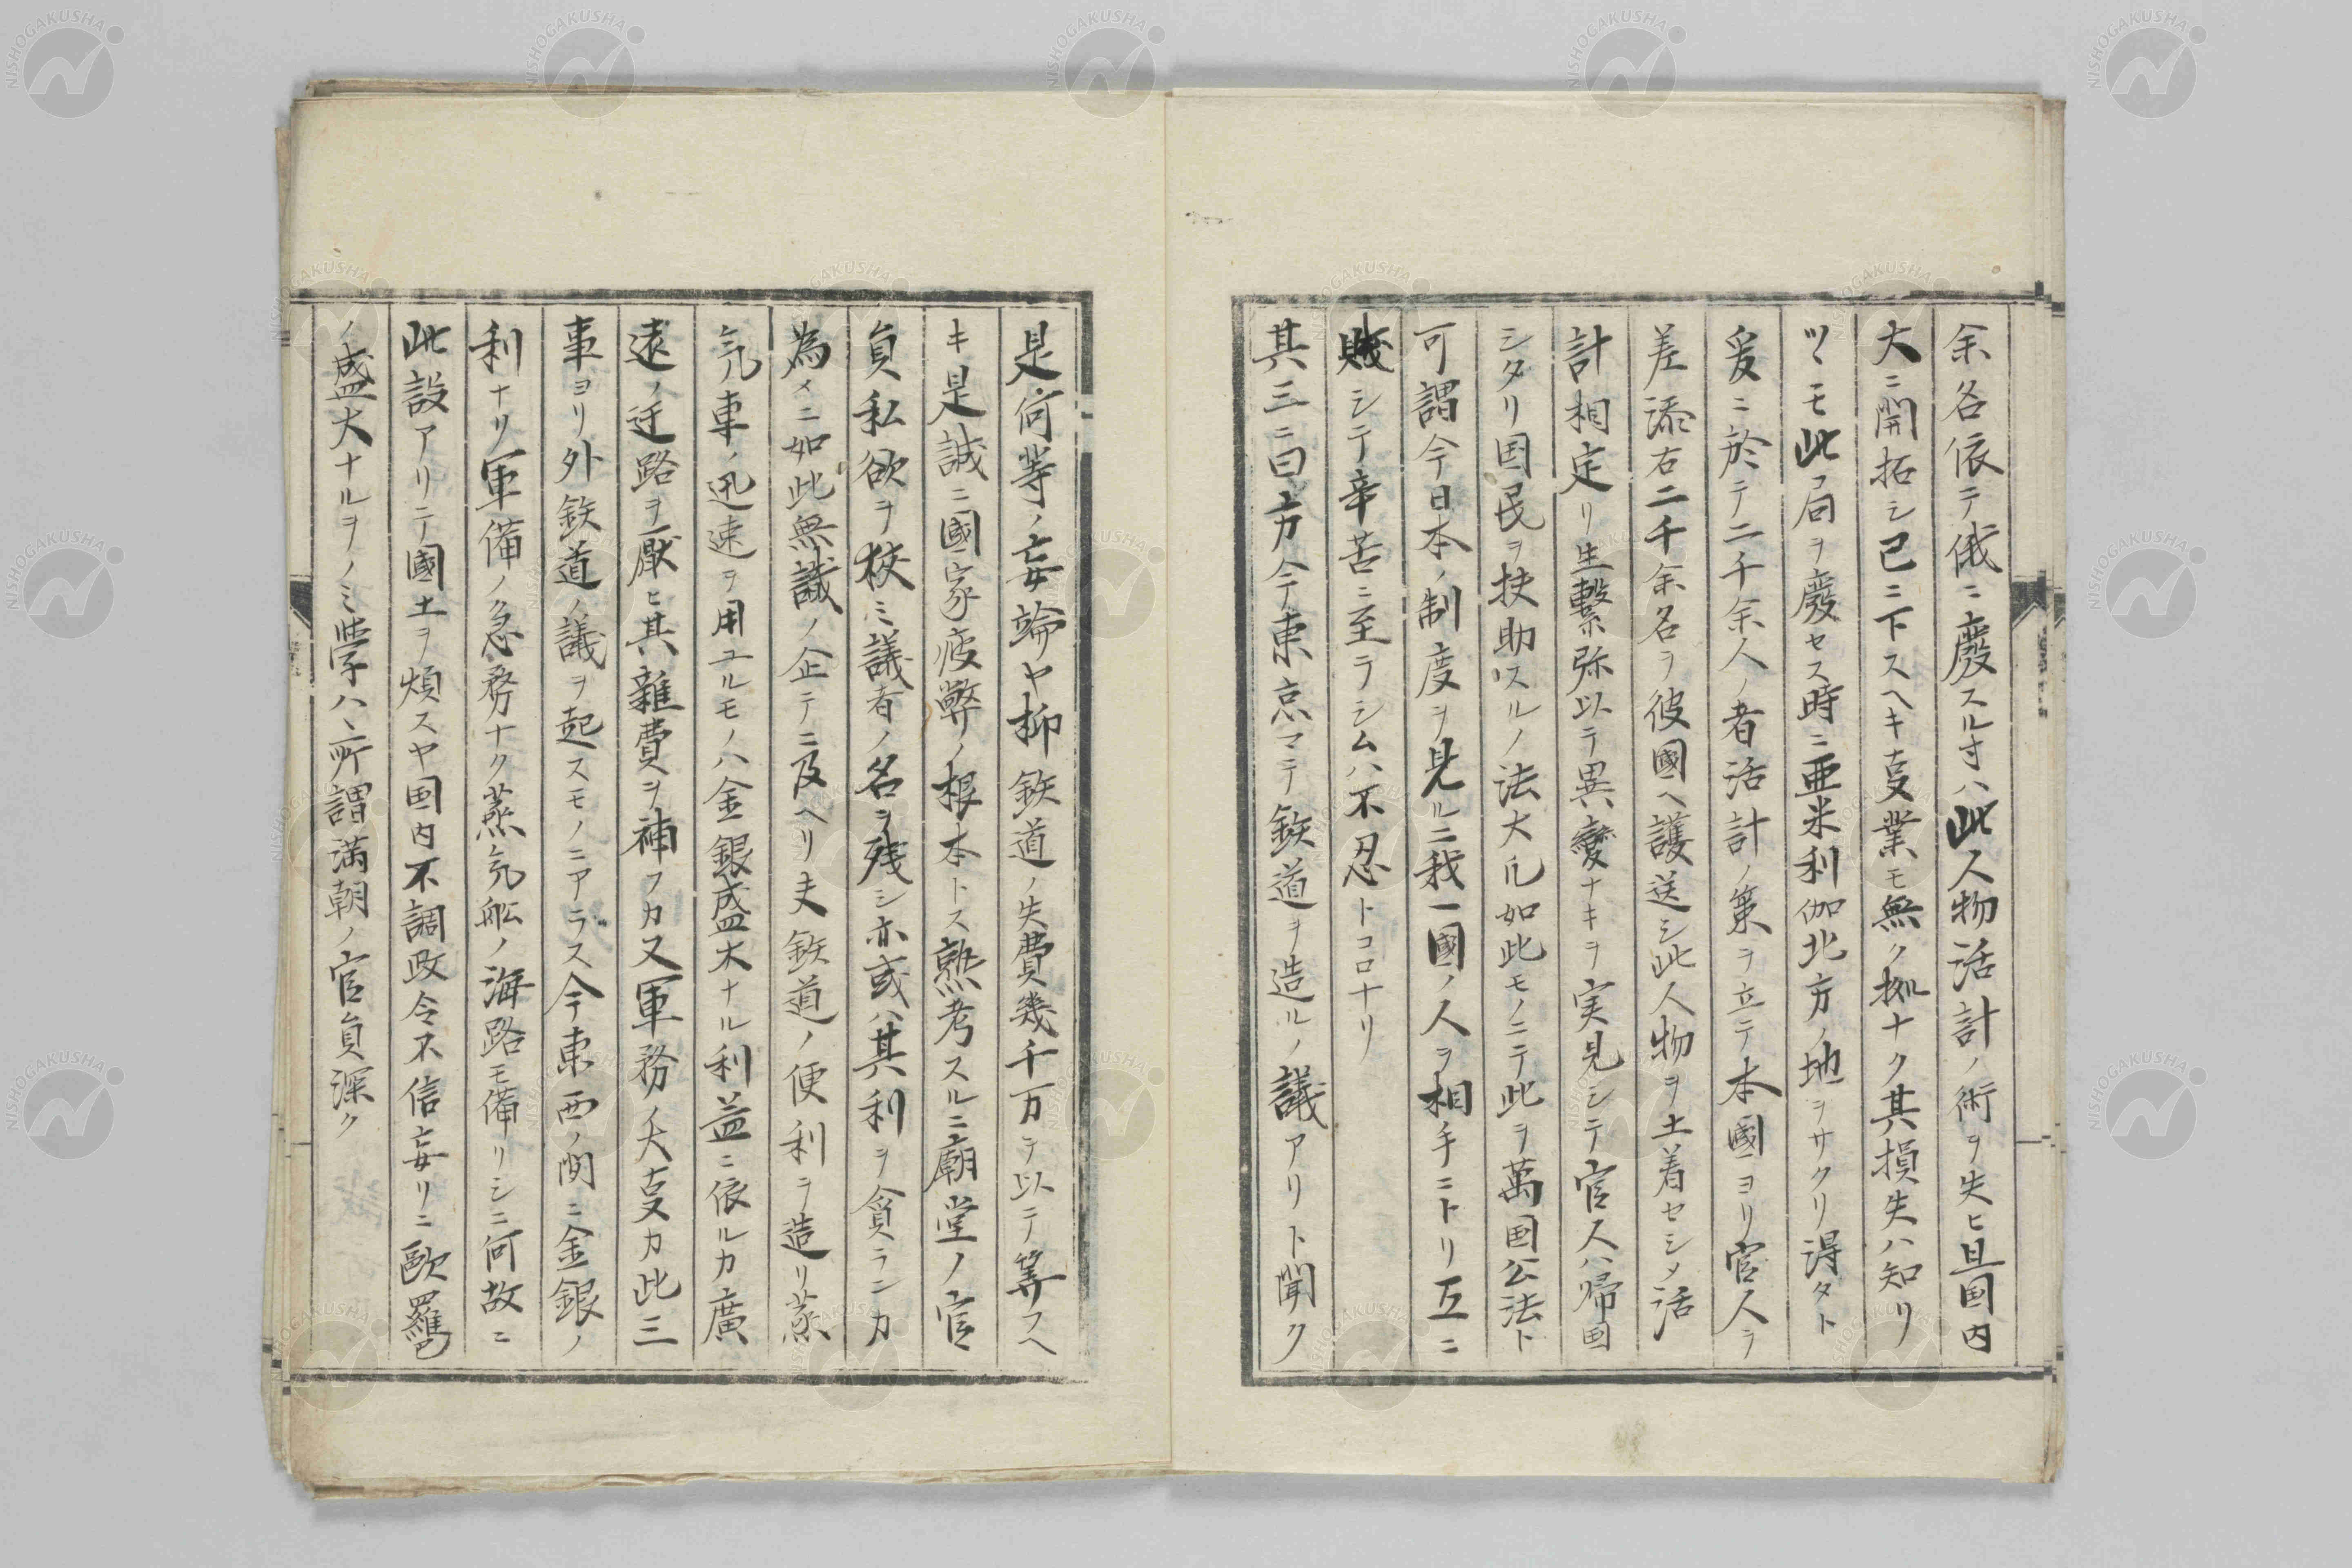 余各依テ俄ニ廢スル寸ハ此人物活計ノ術ヲ失ヒ且国内
大ニ開拓シ已ニ下スヘキ㕝業モ無ク拠ナク其損失ハ知リ
ツヽモ此局ヲ廢セス時ニ亜米利伽北方ノ地ヲサクリ得タト
爰ニ於テ二千余人ノ者活計ノ策ヲ立テ本國ヨリ官人ヲ
差添右二千余名ヲ彼國ヘ護送シ此人物ヲ土着セシメ活
計相定リ生繋弥以テ異變ナキヲ実見シテ官人ハ帰国
シタリ国民ヲ扶助スルノ法大凡如此モノニテ此ヲ萬国公法ト
可謂今日本ノ制度ヲ見ルニ我一國ノ人ヲ相手ニトリ互ニ
賤シテ辛苦ニ至ラシムハ不忍トコロナリ
其三ニ曰方今東京マテ鉄道ヲ造ルノ議アリト聞ク
是何等ノ妄論ヤ抑鉄道ノ失費幾千万ヲ以テ筭フヘ
キ是誠ニ國家疲弊ノ根本トス熟考スルニ廟堂ノ官
員私欲ヲ狹ミ議者ノ名ヲ残シ亦或ハ其利ヲ貪ランカ
為メニ如此無識ノ企テニ及ヘリ夫鉄道ノ便利ヲ造リ蒸
気車ノ迅速ヲ用ユルモノハ金銀盛木ナル利益ニ依ルカ廣
遠ノ迂路ヲ厭ヒ其雜費ヲ補フカ又軍務ノ大㕝カ此三
事ヨリ外鉄道ノ議ヲ起スモノニアラス今東西ノ間ニ金銀ノ
利ナリ軍備ノ急務ナク蒸気舩ノ海路モ備リシニ何故ニ
此設アリテ國土ヲ煩スヤ国内不調政令不信妄リニ歐羅巴
ノ盛大ナルヲノミ学ハヽ所謂満朝ノ官員深ク
NISHOGAKUSHA